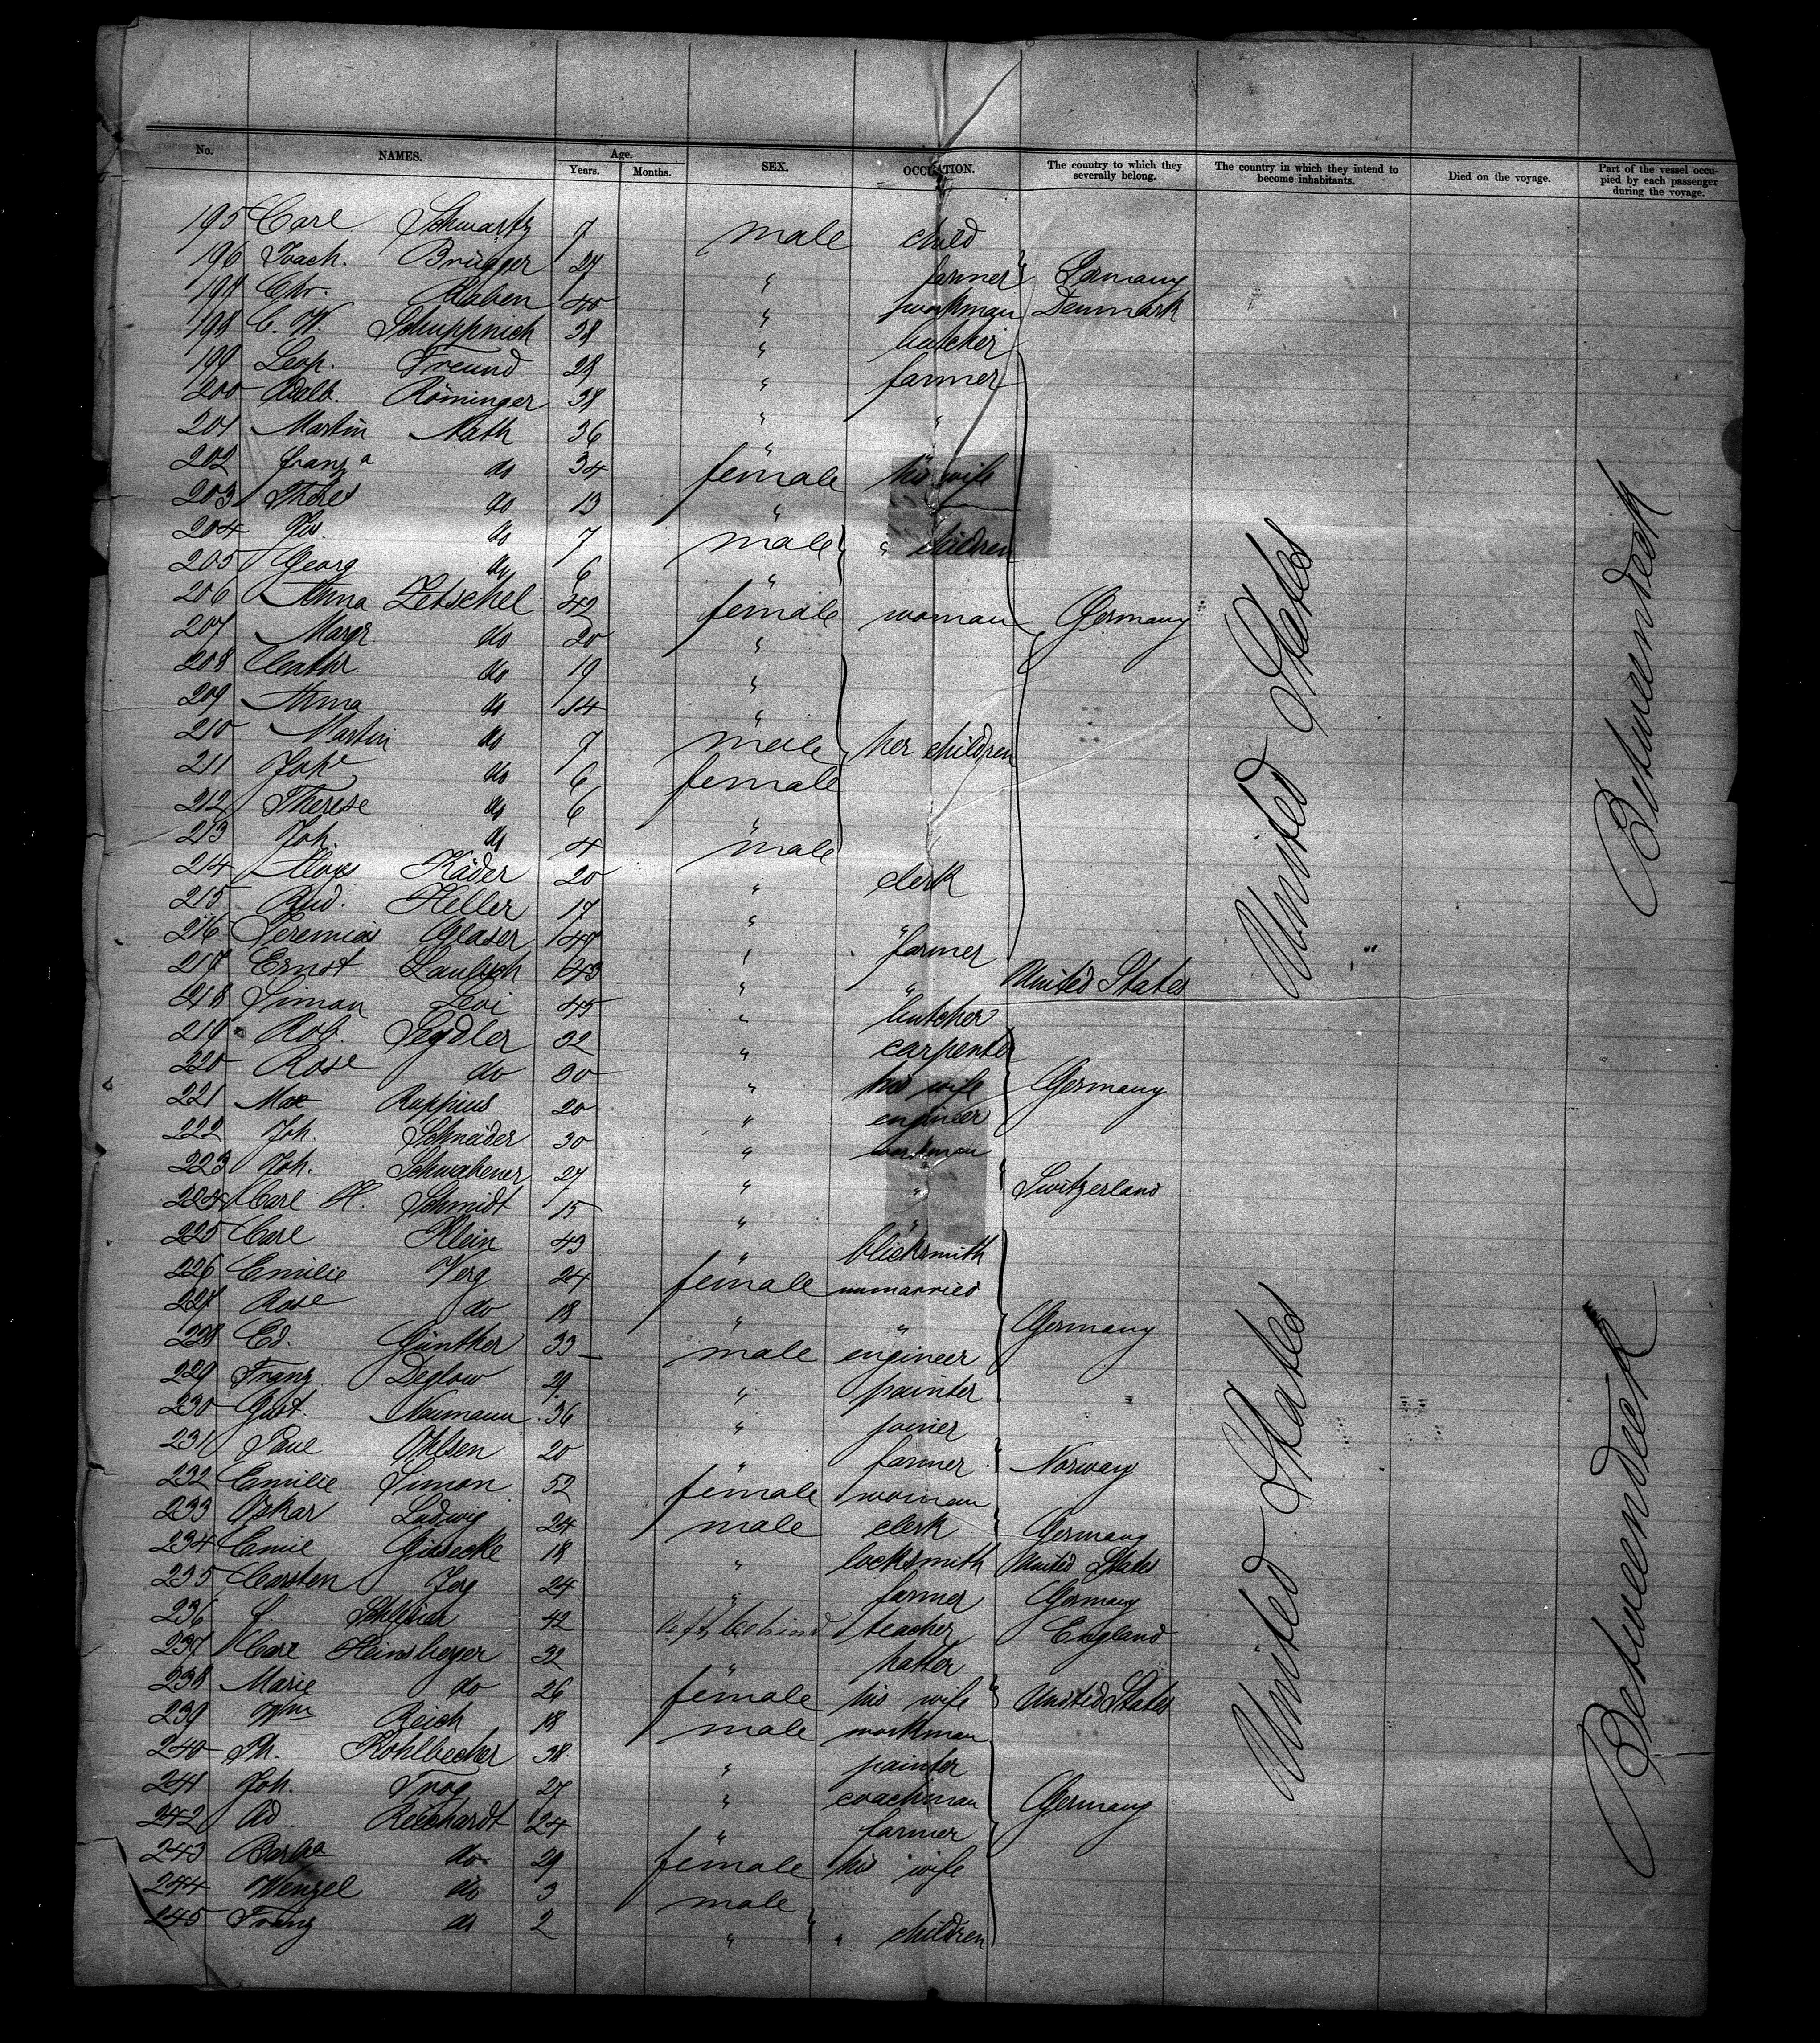 No. NAMES. Age. Years. Months. SEX. OCCUPATION. The country to which they severally belong. The country in which they intend to become inhabitants. Died on the voyage. Part of the vessel occupied by each passenger during the voyage.
195 Carl Schwartz 7 male child
196 Joach. Brügger 27 " farmer Germany
197 Chr. Raben 40 " workman Denmark
198 C. W. Schuppnich 38 " butcher
199 Leop. Freund 29 " farmer
200 Adalb. Röminger 38 " "
201 Martin Nath 36 "
202 Franz a do 34 female his wife
203 Theres do 13 "
204 Jos. do 7 male " children
205 Georg do 6 "
206 Anna Zetschel 42 female woman Germany
207 Margr do 20 "
208 Cathr. do 19 "
209 Anna do 14 "
210 Martin do 7 male her children
211 Johe do 6 female
212 Therese do 6 "
213 Joh. do 4 male
214 Aloys Käder 20 " clerk
215 Rud. Heller 17 " "
216 Jeremias Glaser 47 " farmer
217 Ernst Laubsch 43 " " United States
218 Simon Levi 45 " butcher
219 Rob. Seydler 32 " carpenter
220 Rose do 30 " his wife Germany
221 Max Ruppius 20 " engineer
222 Joh. Schneider 30 " workman
223 Joh. Schwachener 27 " " Switzerland
224 Carl H. Schmidt 15 " "
225 Carl Klein 43 " blicksmith
226 Emilie Verg 24 female unmarried
227 Rose do 18 " " Germany
228 Ed. Günther 33 male engineer
229 Franz Deglow 29 " painter
230 Gust. Neumann 36 " joiner
231 Paul Ohlsen 20 " farmer Norway
232 Emilie Simon 52 female woman
233 Oskar Ludwig 24 male clerk Germany
234 Emil Giesecke 18 " locksmith United States
235 Carsten Jerg 24 " farmer Germany
236 42 left behind teacher England
237 Carl Heinsberger 32 " hatter
238 Marie do 26 female his wife United States
239 Wm Reich 18 male workman
240 Ph. Kohlbecher 38 " painter
241 Joh. Trog 27 " coachman Germany
242 Ad. Reichardt 24 " farmer
243 Barba do 29 female his wife
244 Wenzel do 3 male
245 Franz do 2 " " children
United States
United States
Betweendeck
Betweendeck